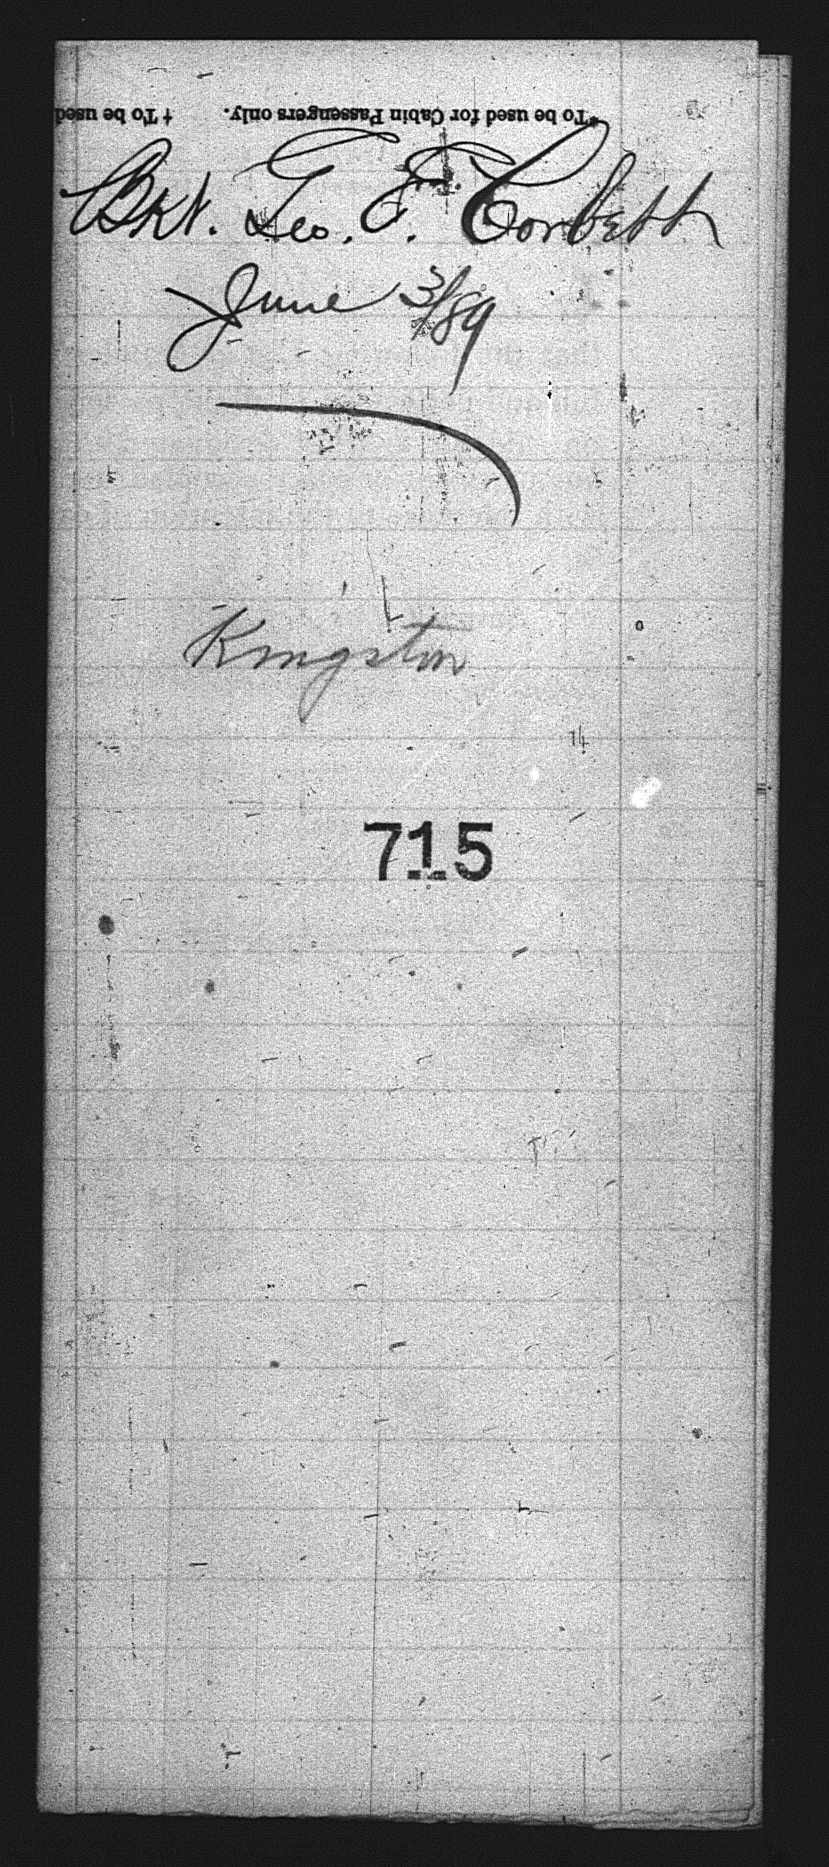 *To be used for Cabin Passengers only. † To be used
Bkt. Geo. E. Corbett
June 3/89
Kingston
715